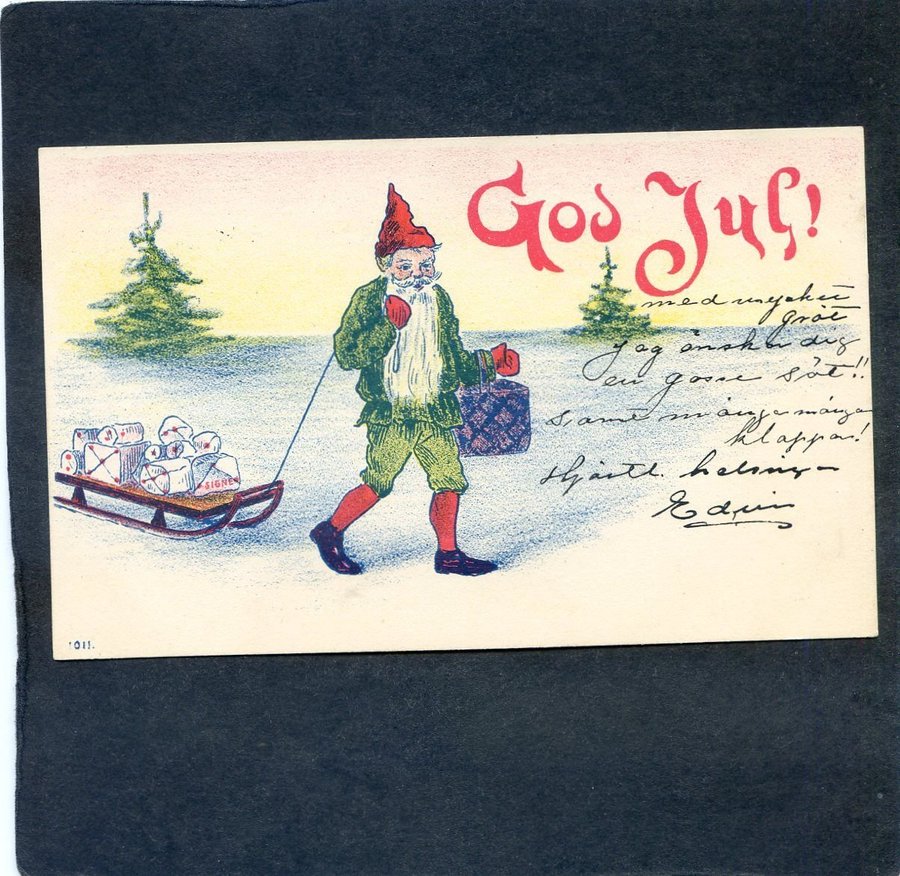 God Jul!
med mycket
gröt
jag önskar dig
en gosse söt!!
samt många många
klappar!
Hjärtl. helsingar
Edvin
SIGNE
1011.